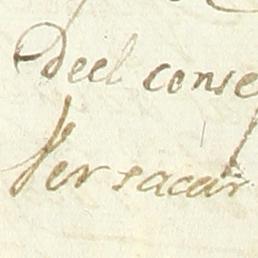 Deel conse
Versacar